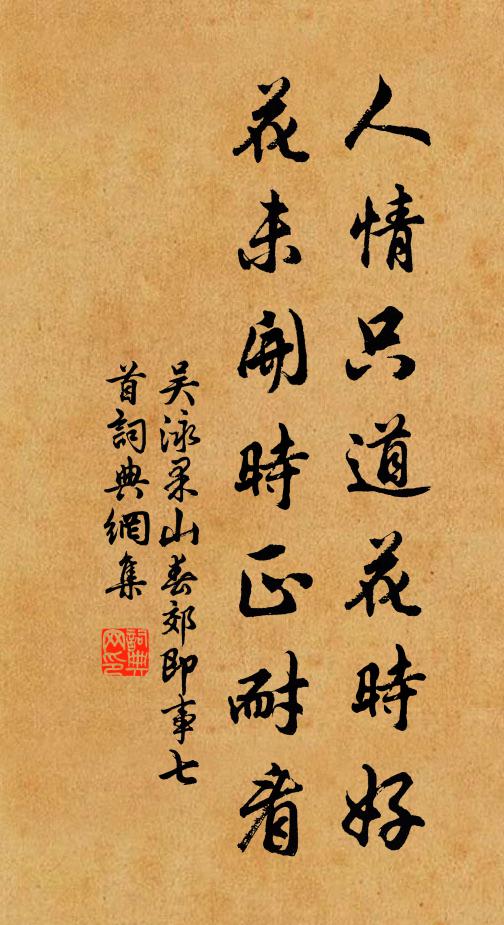 人情只道花時好
花未開時正耐看
吴泳果山春郊即事七
首詞典網集
詞典
网印